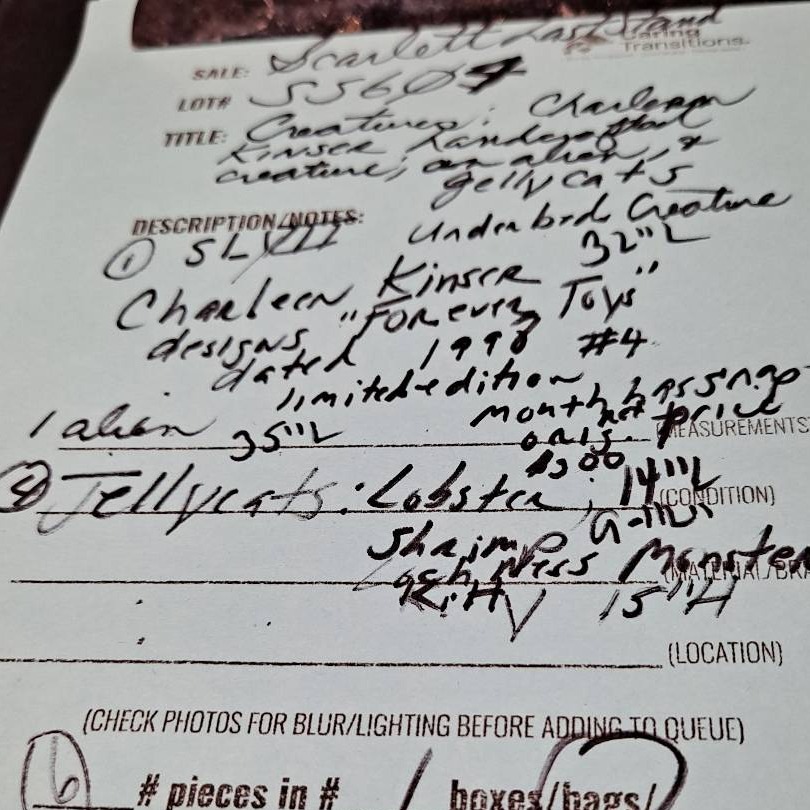 Scarlett Last Stand
Caring
Transitions.
SALE:
LOT# 55607
TITLE: Creatures: Charleen
Kinser
creature, an alien, &
jellycats
DESCRIPTION/NOTES:
Underbed Creature
① 32"L
Charleen Kinser
designs "Forever Toys"
dated 1990 #4
limited edition
mouth has snap
1 alien 35"L orig. price
$300
(MEASUREMENTS
④ Jellycats: Lobster, 14"L
(CONDITION)
Shrimp 9"L
Loch Ness Monster
(MATERIAL/BRA
Kitty 15"H
(LOCATION)
(CHECK PHOTOS FOR BLUR/LIGHTING BEFORE ADDING TO QUEUE)
6 # pieces in # / boxes/bags/